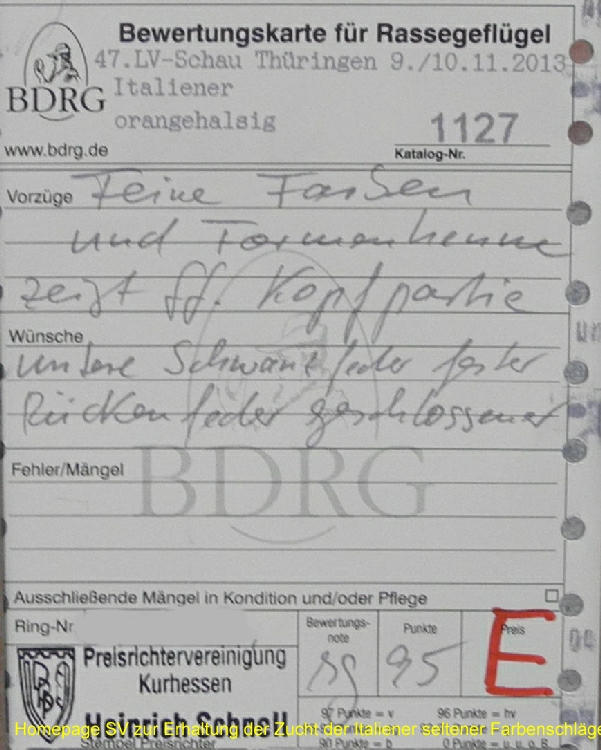 Bewertungskarte für Rassegeflügel
47.LV-Schau Thüringen 9./10.11.2013
Italiener
BDRG
orangehalsig
1127
www.bdrg.de
Katalog-Nr.
Vorzüge Feine Farben
und Formenhenne
zeigt ff. Kopfpartie
Wünsche
untere Schwanzfeder fester
Rückenfeder geschlossener
BDRG
Fehler/Mängel
Ausschließende Mängel in Kondition und/oder Pflege
Ring-Nr
Bewertungs-
note
Punkte
Preis
sg 95 E
Preisrichtervereinigung
Kurhessen
97 Punkte = v 96 Punkte = hv
Heinrich Schnell
Homepage SV zur Erhaltung der Zucht der Italiener seltener Farbenschläge
Stempel Preisrichter
90 Punkte = b 0 Punkte =